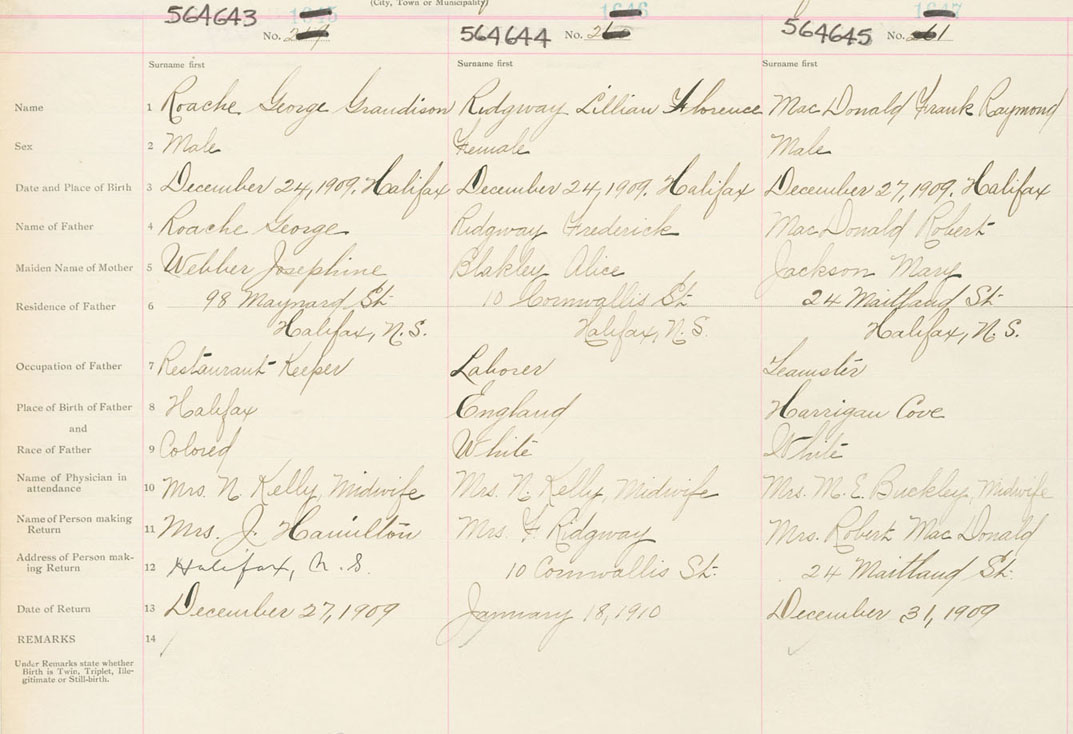 (City, Town or Municipality)
564643 1645 No.
564644 1646 No.
564645 1647 No.
Surname first Surname first Surname first
Name 1 Roache George Grandison Ridgway Lillian Florence Mac Donald Frank Raymond
Sex 2 Male Female Male
Date and Place of Birth 3 December 24, 1909. Halifax December 24, 1909. Halifax December 27, 1909. Halifax
Name of Father 4 Roache George Ridgway Frederick Mac Donald Robert
Maiden Name of Mother 5 Webber Josephine Blakley Alice Jackson Mary
Residence of Father 6 98 Maynard St. 10 Cornwallis St. 24 Maitland St.
Halifax, N.S. Halifax, N.S. Halifax, N.S.
Occupation of Father 7 Restaurant Keeper Laborer Teamster
Place of Birth of Father 8 Halifax England Harrigan Cove
and
Race of Father 9 Colored White White
Name of Physician in
attendance 10 Mrs. N. Kelly, Midwife Mrs. N. Kelly, Midwife Mrs. M. E. Buckley, Midwife
Name of Person making
Return 11 Mrs. J. Hamilton Mrs. F. Ridgway Mrs. Robert Mac Donald
Address of Person mak-
ing Return 12 Halifax, N.S. 10 Cornwallis St. 24 Maitland St.
Date of Return 13 December 27, 1909 January 18, 1910 December 31, 1909
REMARKS 14
Under Remarks state whether
Birth is Twin, Triplet, Ille-
gitimate or Still-birth.